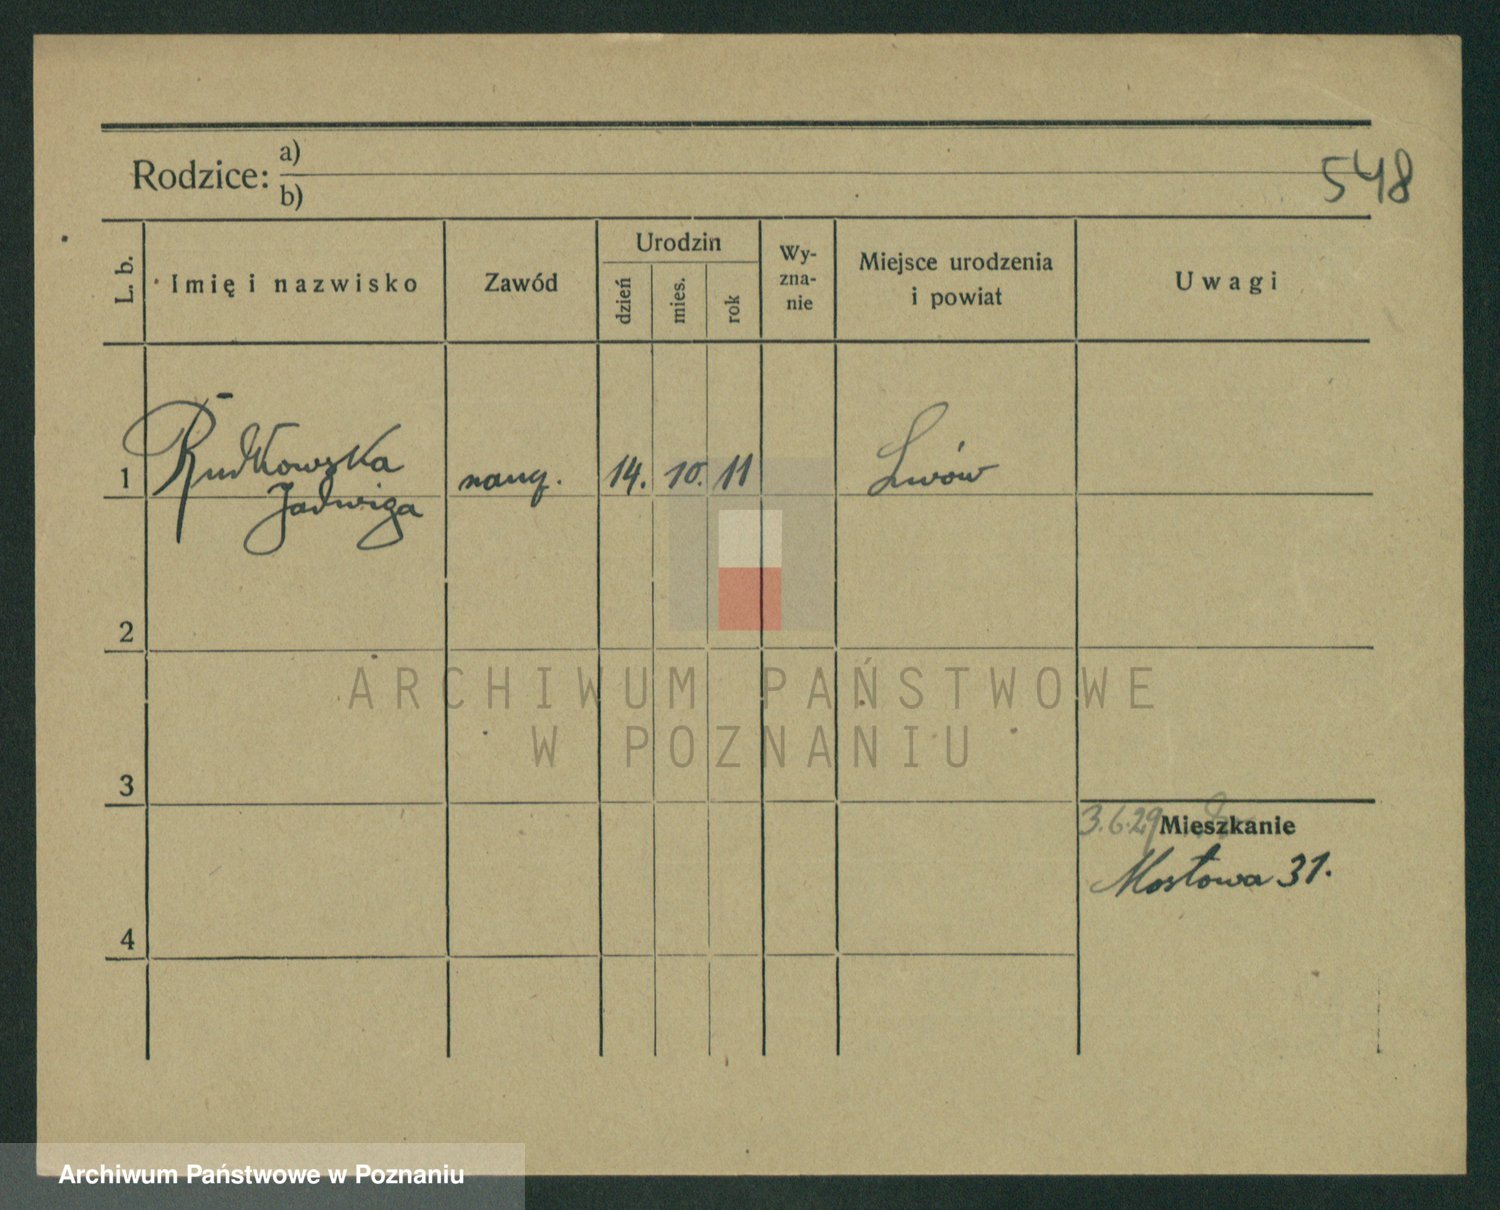 Rodzice: a)
b)
548
L. b.
Imię i nazwisko
Zawód
Urodzin
dzień
mies.
rok
Wy-
zna-
nie
Miejsce urodzenia
i powiat
Uwagi
1
Rudkowska
Jadwiga
naucz.
14. 10. 11
Lwów
2
ARCHIWUM PAŃSTWOWE
W POZNANIU
3
3.6.29
Mieszkanie
Mostowa 31.
4
Archiwum Państwowe w Poznaniu